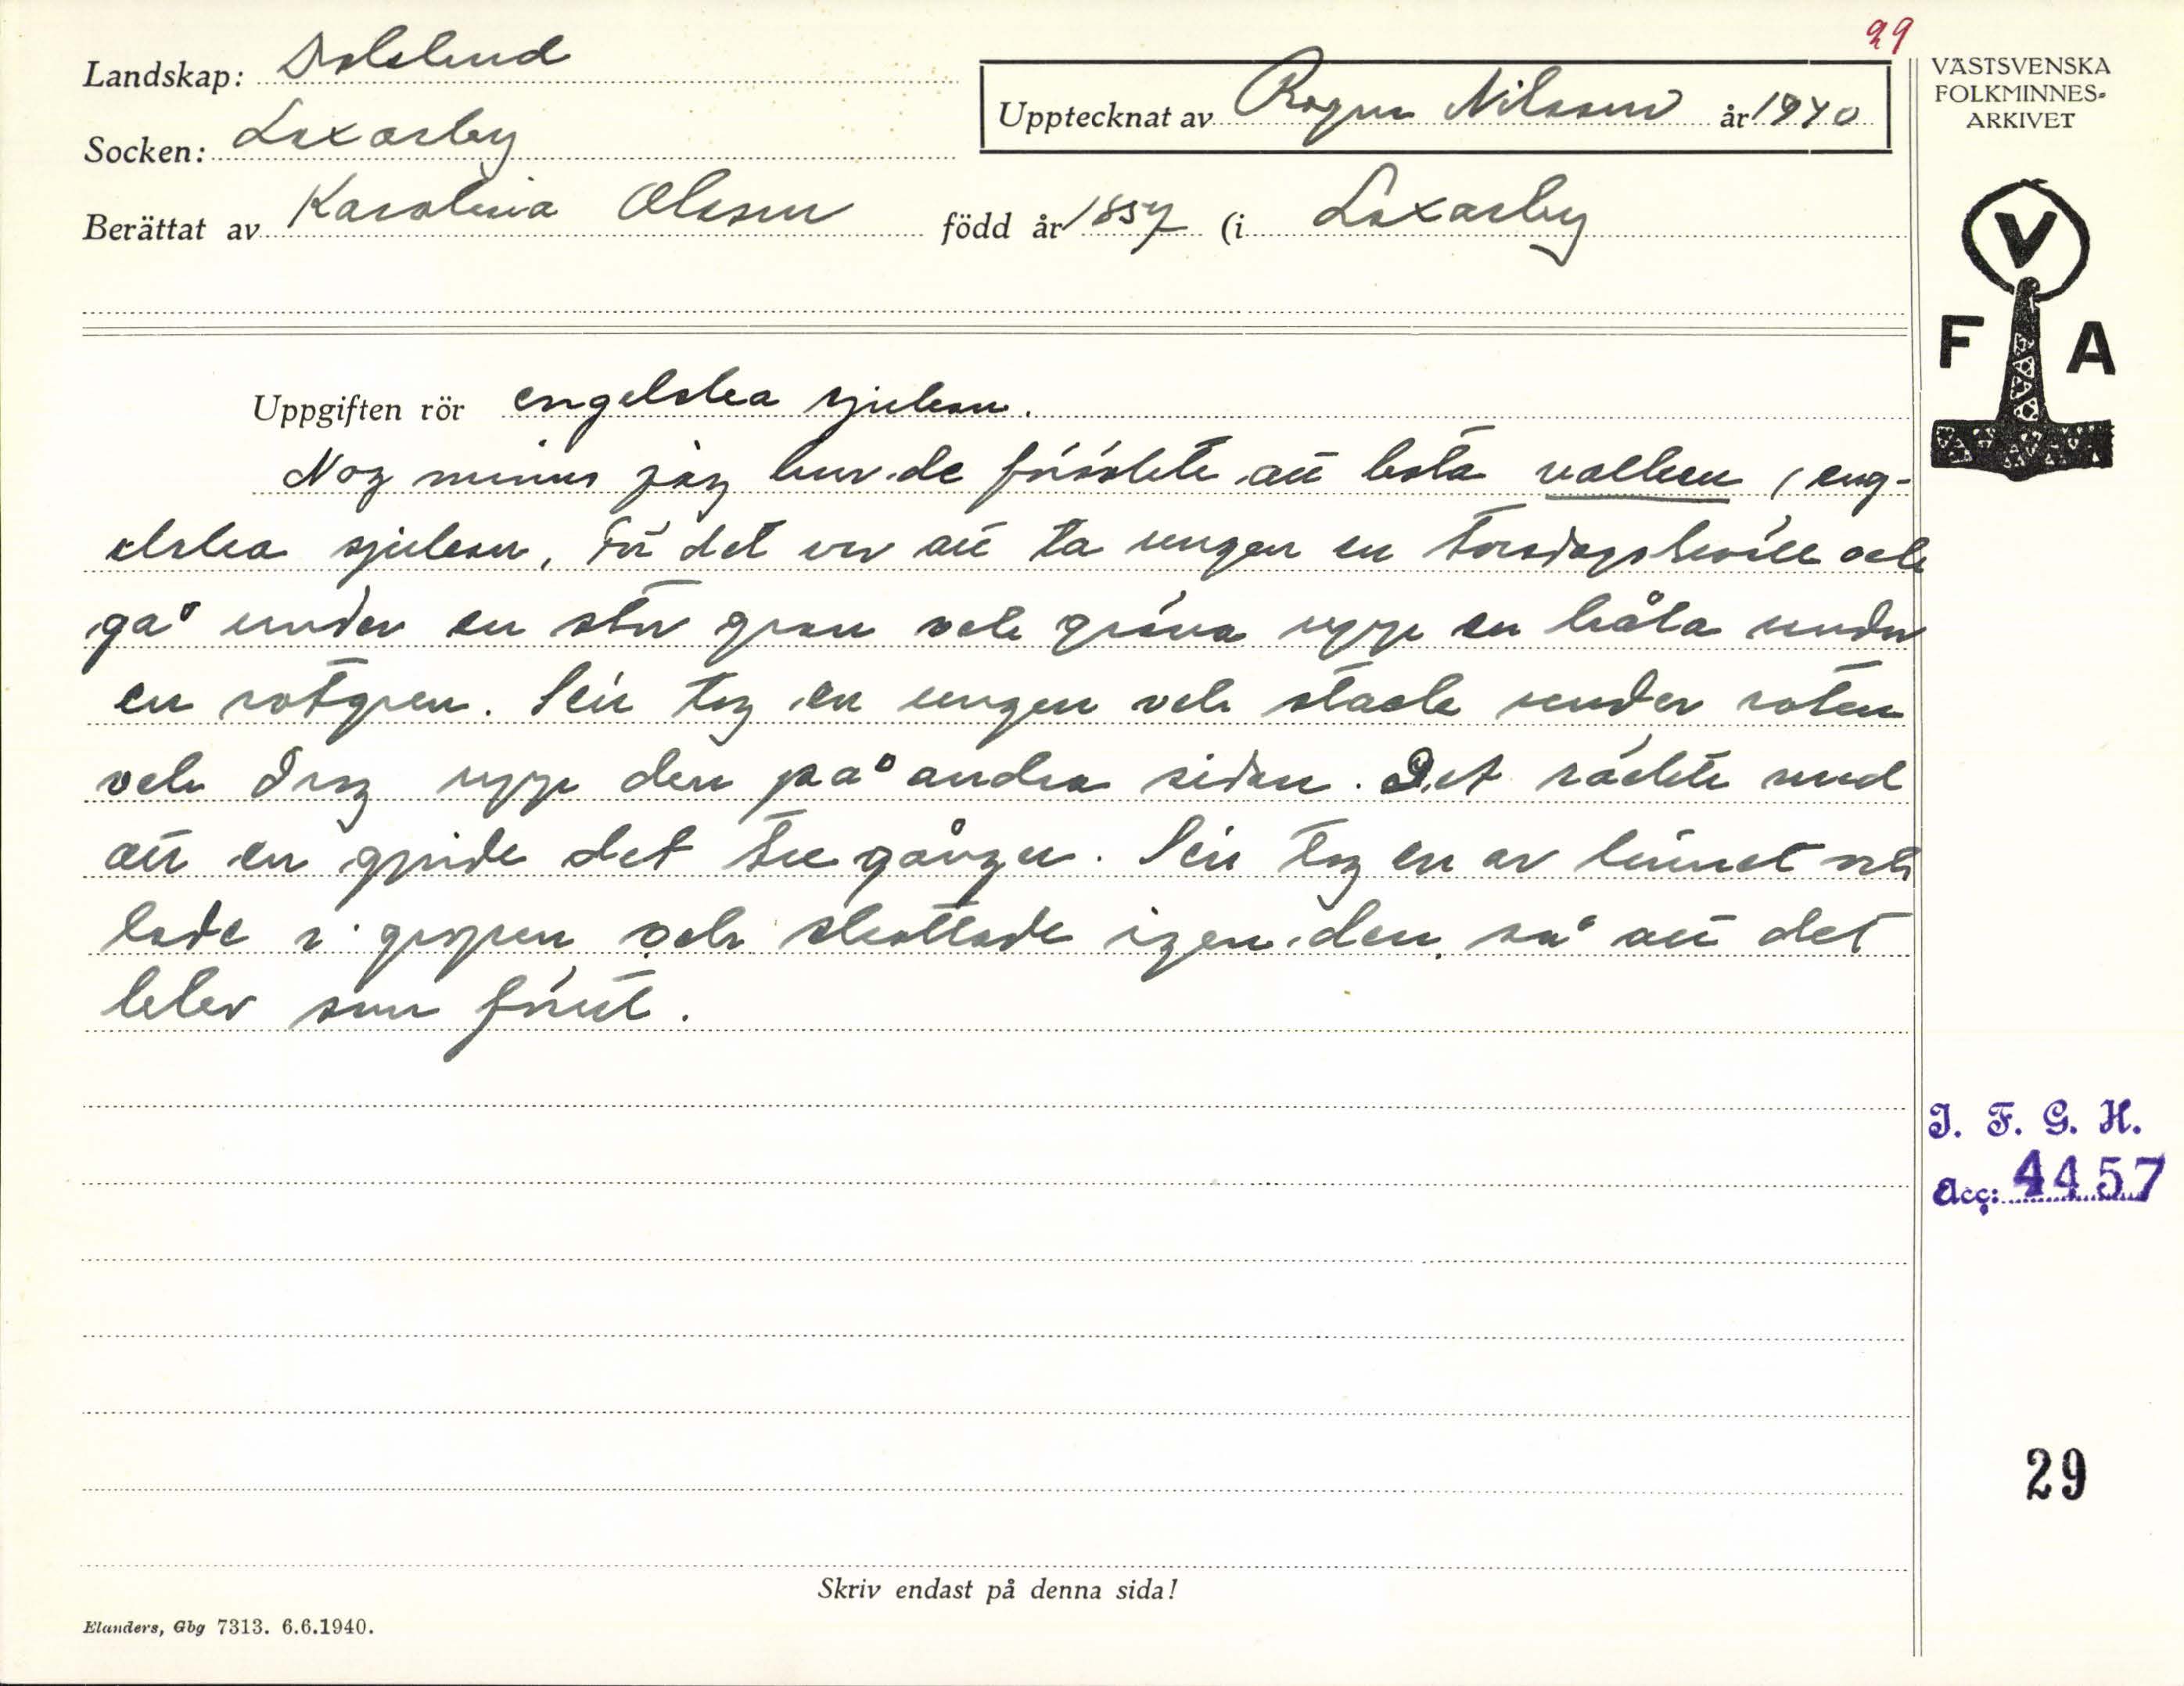 29
Landskap: Dalsland
Socken: Laxarby
Upptecknat av Ragnar Nilsson år 1940
Berättat av Karolina Olsson född år 1857 (i Laxarby
VÄSTSVENSKA
FOLKMINNES-
ARKIVET
V
F A
Uppgiften rör engelska sjukan.
Nog minns jag hur de försökte att bota valken, eng-
elska sjukan, För det var att ta ungen en torsdagskväll och
gå under en stor gran och gräva upp en håla under
en rotgren. Sen tog en ungen och stack under roten
och drog upp den på andra sidan. Det räckte med
att en gjorde det tre gånger. Sen tog en av linnet och
lade i gropen och skottade igen den, så att det
blev som förut.
I. F. G. H.
Acc: 4457
29
Skriv endast på denna sida!
Elanders, Gbg 7313. 6.6.1940.